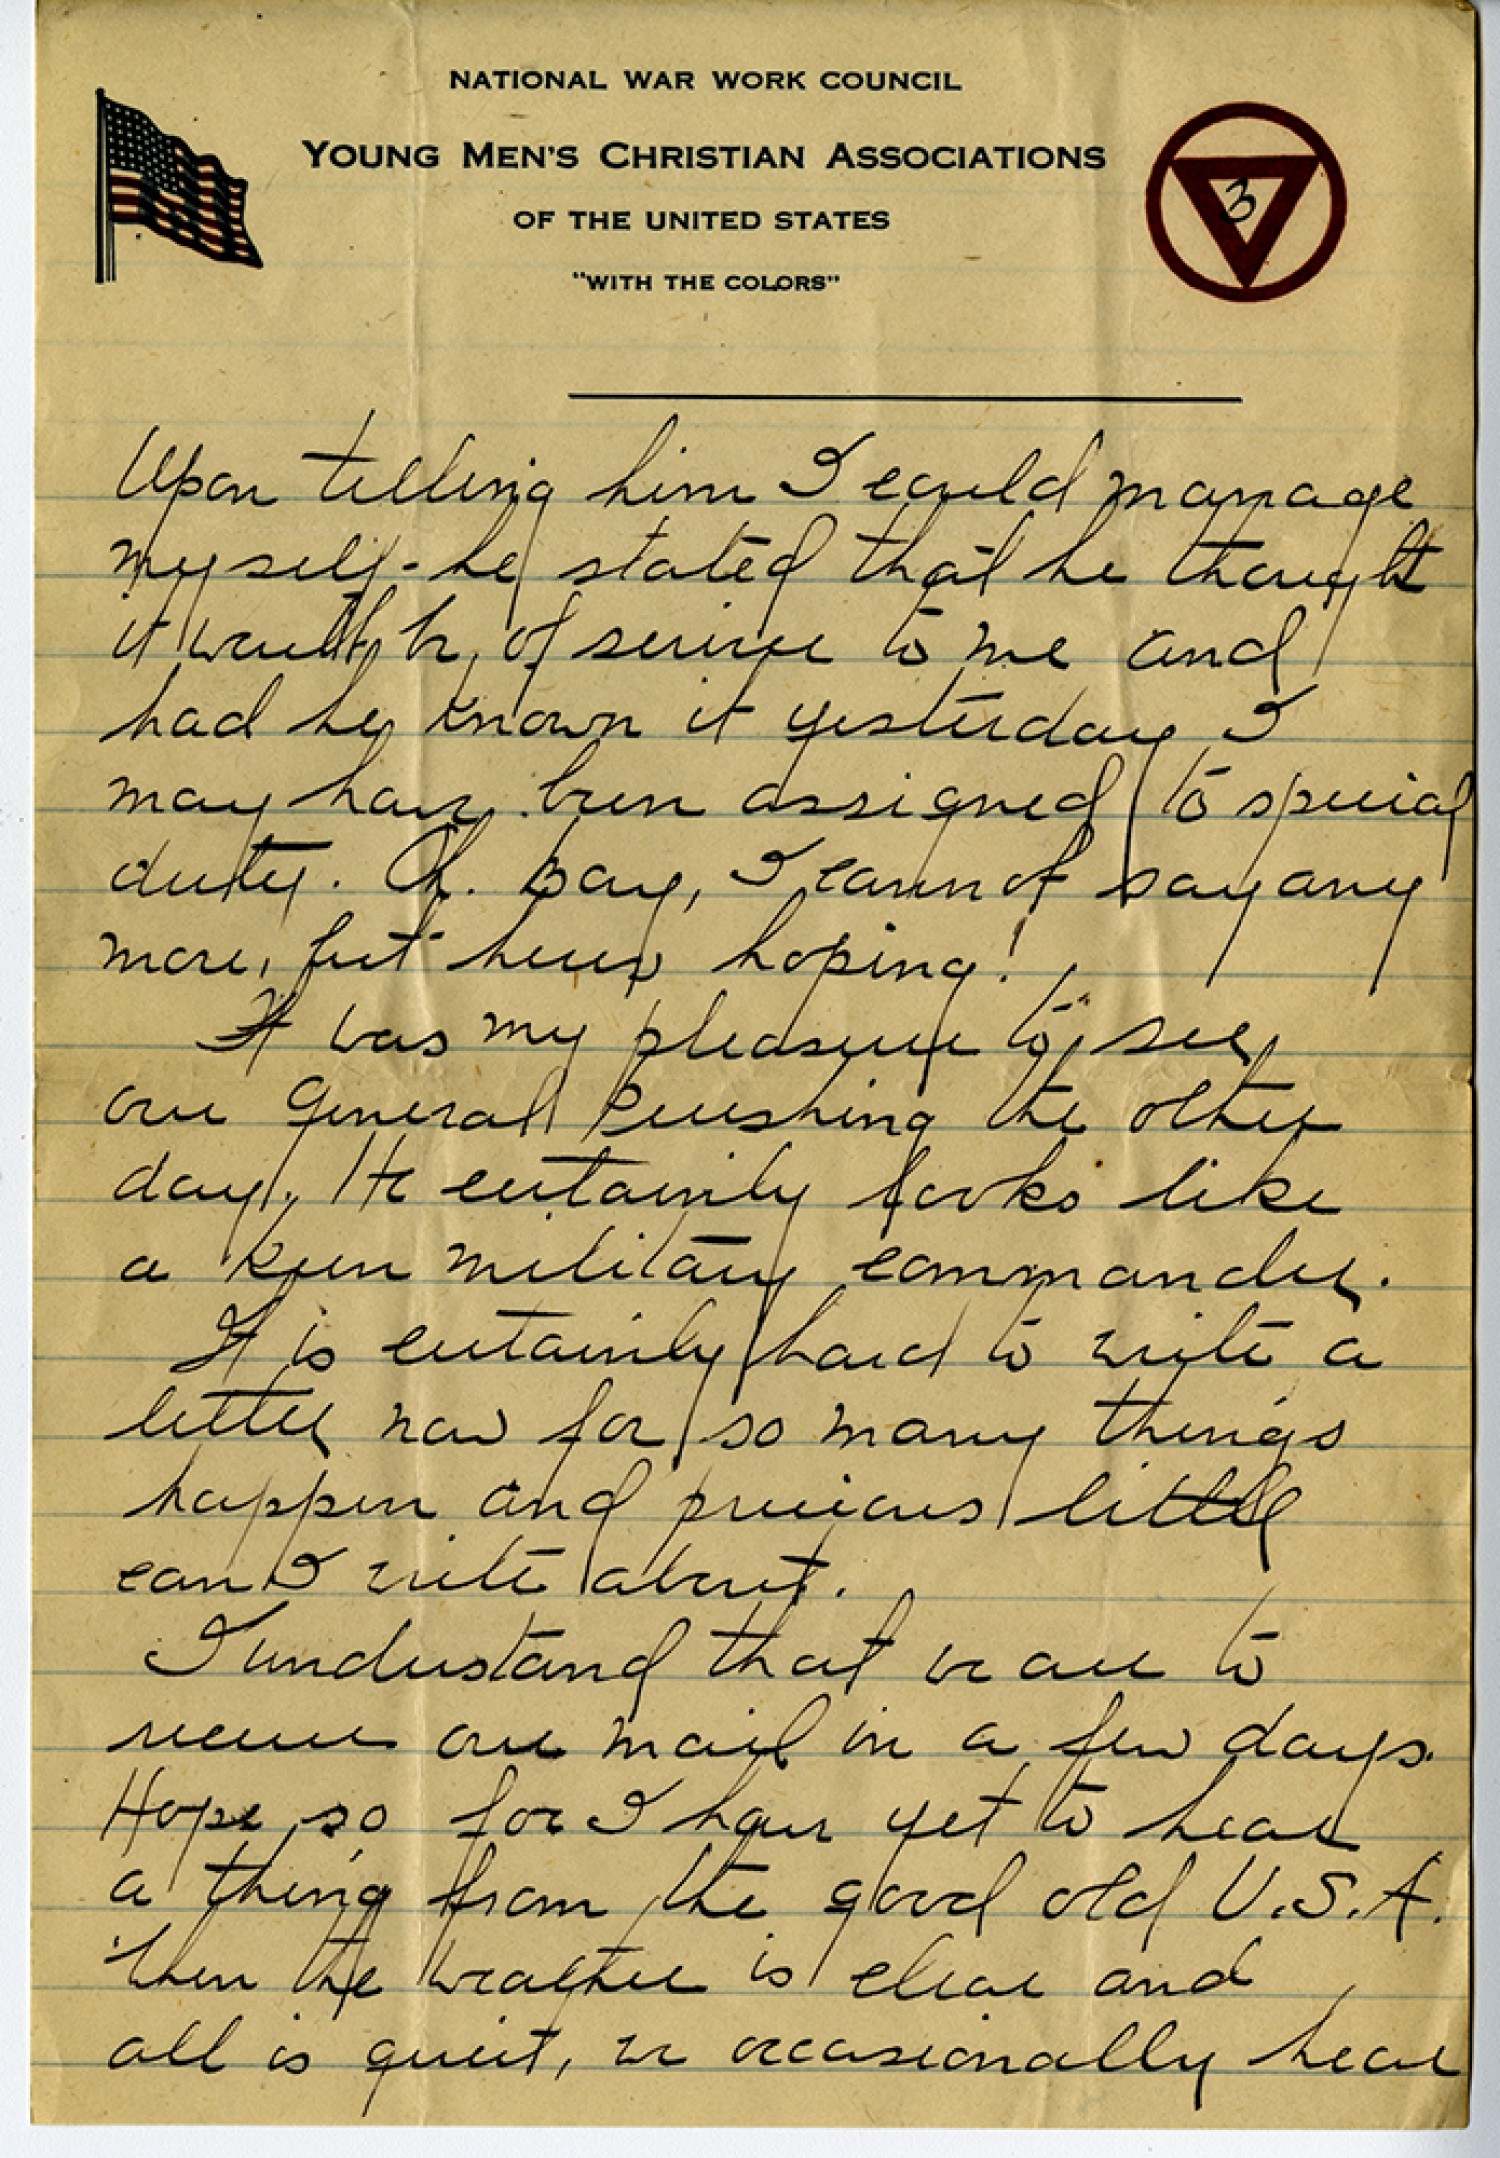 NATIONAL WAR WORK COUNCIL
YOUNG MEN'S CHRISTIAN ASSOCIATIONS
OF THE UNITED STATES
"WITH THE COLORS"
3
Upon telling him I could manage
myself - he stated that he thought
it would be of service to me and
had he known it yesterday I
may have been assigned to special
duty. Oh. Boy, I cannot say any
more, but heres hoping!
It was my pleasure to see
our General Pershing the other
day. He certainly looks like
a keen military commander.
It is certainly hard to write a
letter now for so many things
happen and precious little
can I write about.
I understand that we are to
receive our mail in a few days.
Hope so for I have yet to hear
a thing from the good old U.S.A.
When the weather is clear and
all is quiet, we occasionally hear